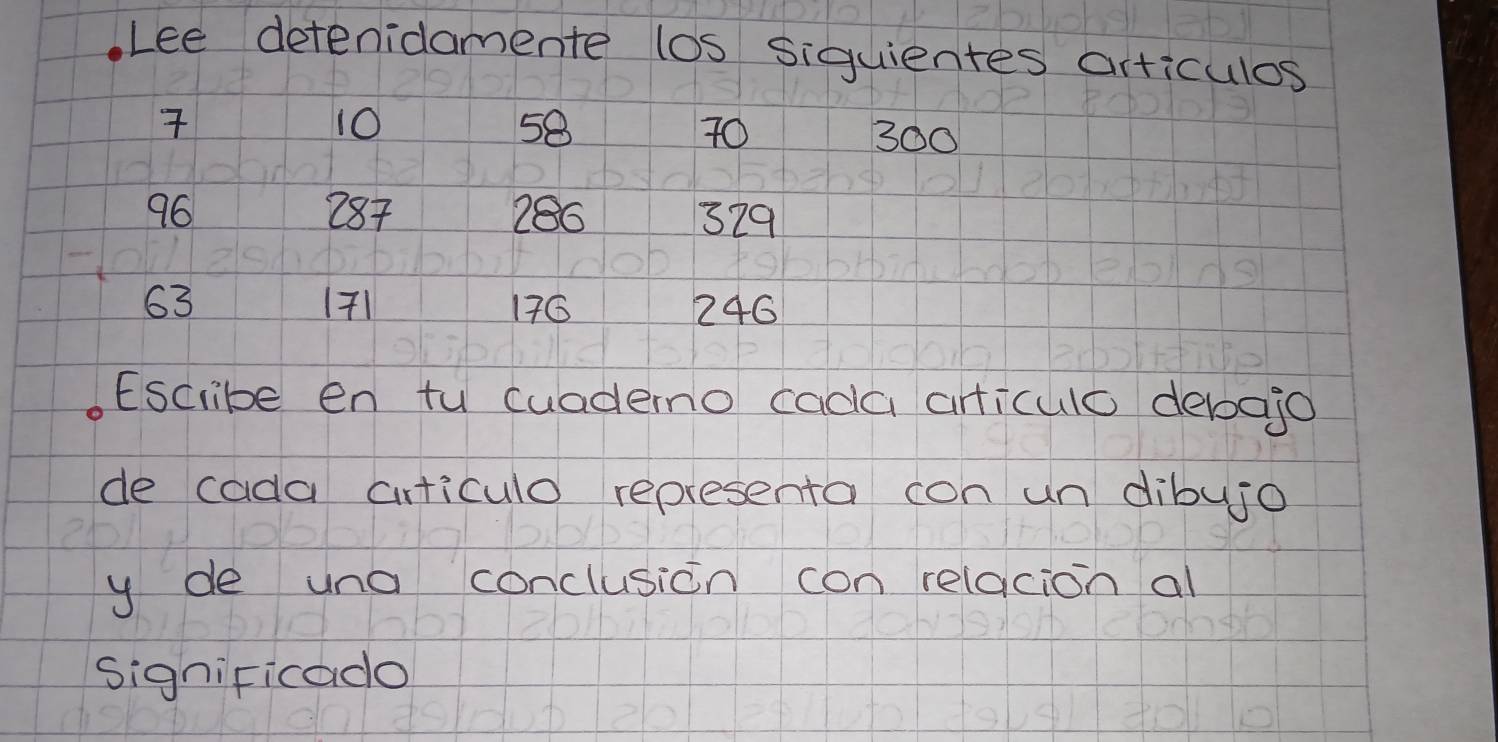 .Lee detenidamente los siguientes articulos
7 10 58 70 300
96 287 286 329
63 171 176 246
.Escribe en tu cuaderno cada articulo debajo
de cada articulo representa con un dibujo
y de una conclusión con relación al
significado